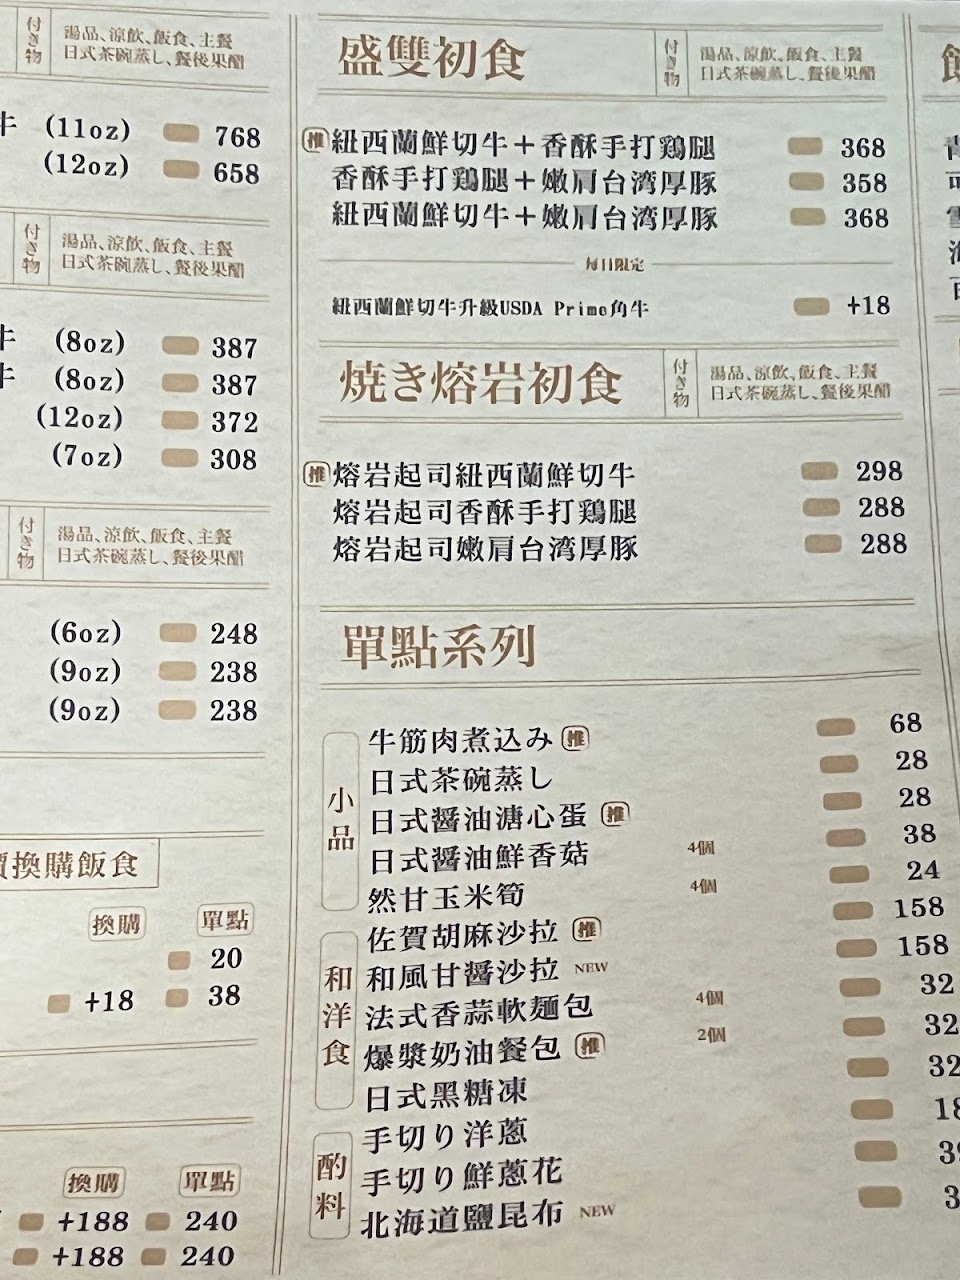 付き物
湯品、涼飲、飯食、主餐
日式茶碗蒸し、餐後果醋
牛 (11oz) 768
(12oz) 658
付き物
湯品、涼飲、飯食、主餐
日式茶碗蒸し、餐後果醋
牛 (8oz) 387
牛 (8oz) 387
(12oz) 372
(7oz) 308
付き物
湯品、涼飲、飯食、主餐
日式茶碗蒸し、餐後果醋
(6oz) 248
(9oz) 238
(9oz) 238
換購飯食
換購 單點
20
+18 38
換購 單點
+188 240
+188 240
盛雙初食
付き物
湯品、涼飲、飯食、主餐
日式茶碗蒸し、餐後果醋
推 紐西蘭鮮切牛＋香酥手打鶏腿 368
香酥手打鶏腿＋嫩肩台湾厚豚 358
紐西蘭鮮切牛＋嫩肩台湾厚豚 368
每日限定
紐西蘭鮮切牛升級USDA Prime角牛 +18
焼き熔岩初食
付き物
湯品、涼飲、飯食、主餐
日式茶碗蒸し、餐後果醋
推 熔岩起司紐西蘭鮮切牛 298
熔岩起司香酥手打鶏腿 288
熔岩起司嫩肩台湾厚豚 288
單點系列
小品
牛筋肉煮込み 推 68
日式茶碗蒸し 28
日式醤油溏心蛋 推 28
日式醤油鮮香菇 4個 38
然甘玉米筍 4個 24
和洋食
佐賀胡麻沙拉 推 158
和風甘醤沙拉 NEW 158
法式香蒜軟麵包 4個 32
爆漿奶油餐包 推 2個 32
日式黑糖凍 32
酌料
手切り洋蔥
手切り鮮蔥花
北海道鹽昆布 NEW